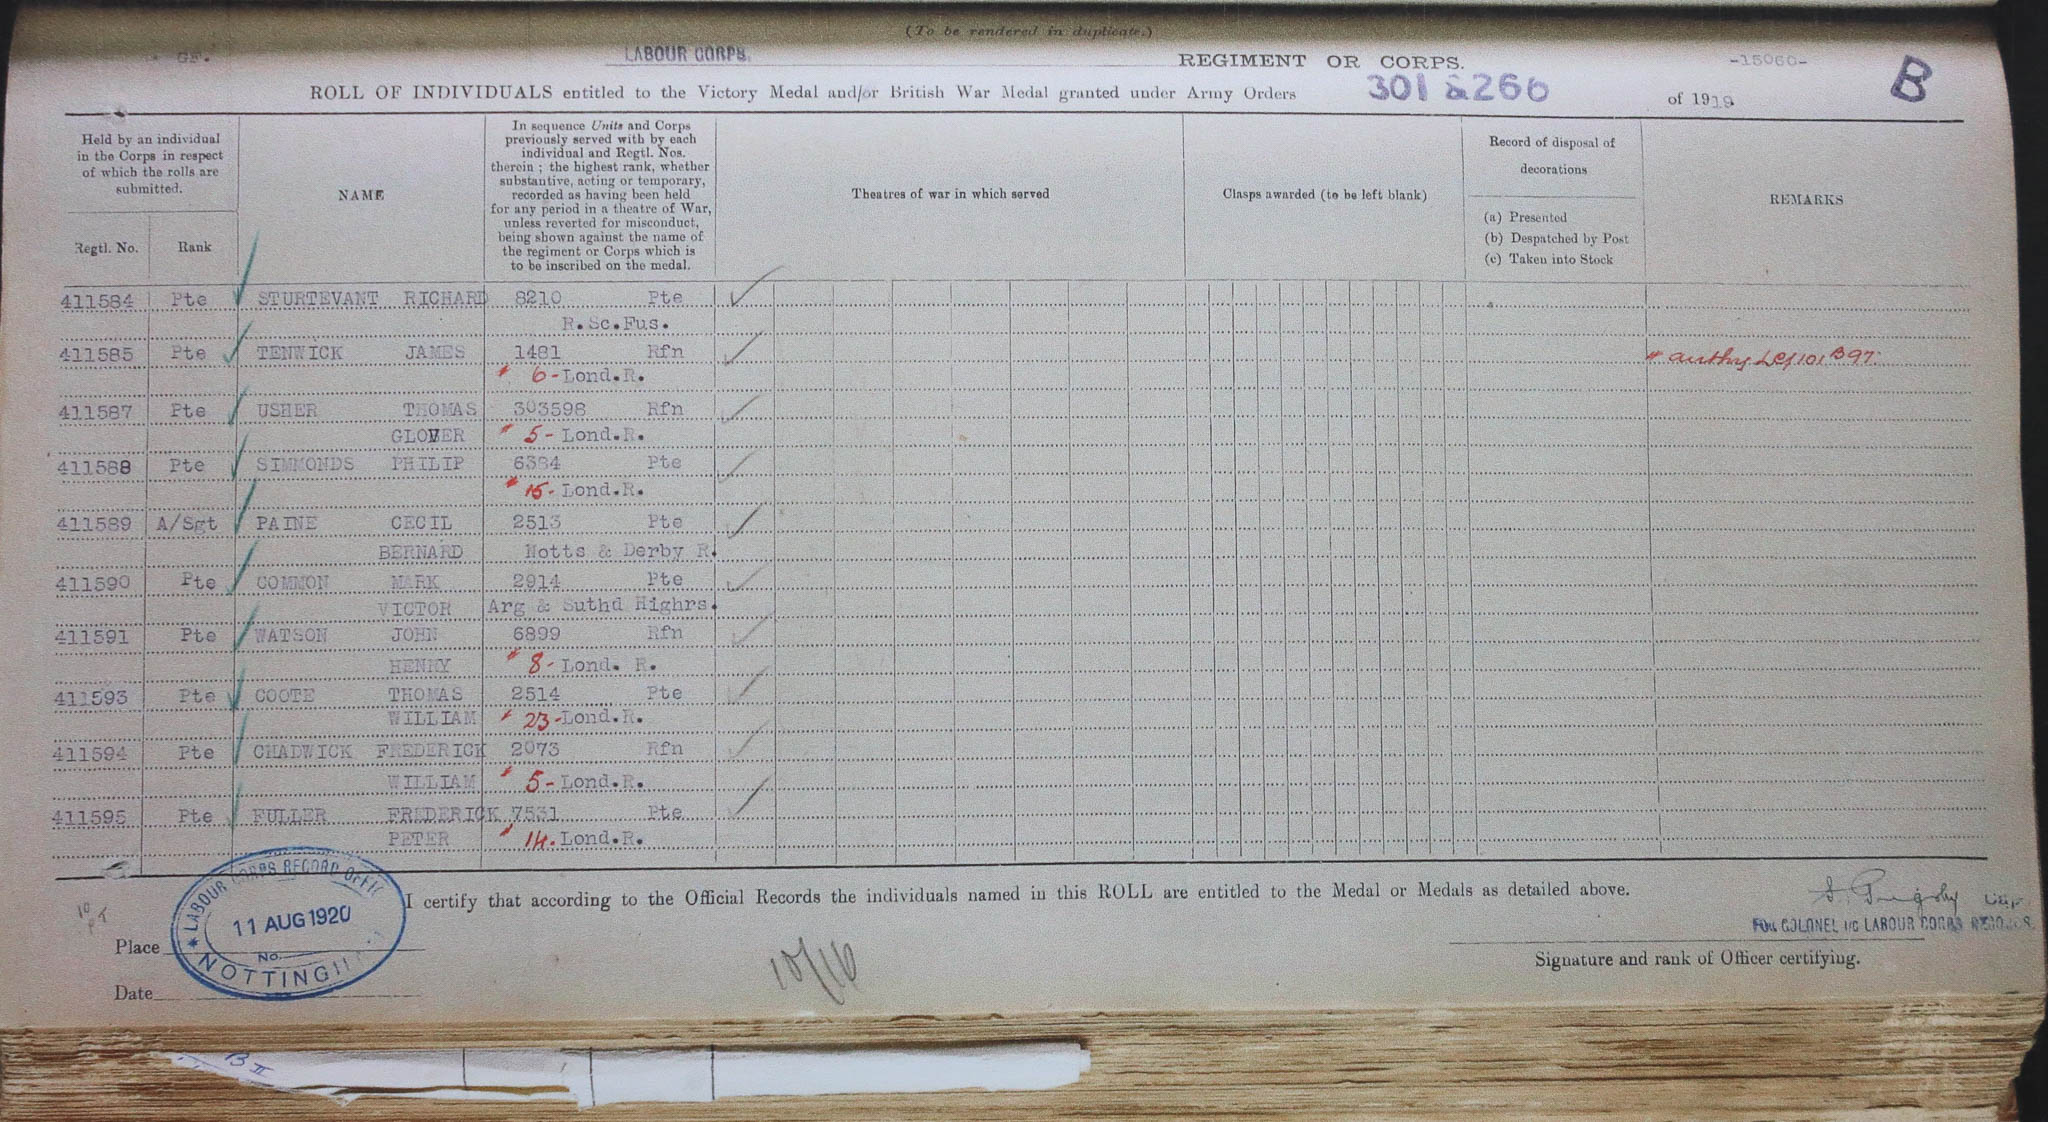 (To be rendered in duplicate.)
GF. LABOUR CORPS. REGIMENT OR CORPS. -15060- B
ROLL OF INDIVIDUALS entitled to the Victory Medal and/or British War Medal granted under Army Orders 301 & 266 of 1919
Held by an individual in the Corps in respect of which the rolls are submitted.
Regtl. No.
Rank
NAME
In sequence Units and Corps
previously served with by each
individual and Regtl. Nos.
therein ; the highest rank, whether
substantive, acting or temporary,
recorded as having been held
for any period in a theatre of War,
unless reverted for misconduct,
being shown against the name of
the regiment or Corps which is
to be inscribed on the medal.
Theatres of war in which served
Clasps awarded (to be left blank)
Record of disposal of
decorations
(a) Presented
(b) Despatched by Post
(c) Taken into Stock
REMARKS
411584 Pte STURTEVANT RICHARD 8210 Pte
R.Sc.Fus.
411585 Pte TENWICK JAMES 1481 Rfn
6-Lond.R.
411587 Pte USHER THOMAS 303598 Rfn
GLOVER 5-Lond.R.
411588 Pte SIMMONDS PHILIP 6384 Pte
15-Lond.R.
411589 A/Sgt PAINE CECIL 2513 Pte
BERNARD Notts & Derby R.
411590 Pte COMMON MARK 2914 Pte
VICTOR Arg & Suthd Highrs.
411591 Pte WATSON JOHN 6899 Rfn
HENRY 8-Lond. R.
411593 Pte COOTE THOMAS 2514 Pte
WILLIAM 23-Lond.R.
411594 Pte CHADWICK FREDERICK 2073 Rfn
WILLIAM 5-Lond.R.
411595 Pte FULLER FREDERICK 7531 Pte
PETER 14.Lond.R.
I certify that according to the Official Records the individuals named in this ROLL are entitled to the Medal or Medals as detailed above.
LABOUR CORPS RECORD OFFIC
11 AUG 1920
No.
NOTTINGH
FOR COLONEL I/C LABOUR CORPS RECORDS.
Place
Date
10/16
Signature and rank of Officer certifying.
B II